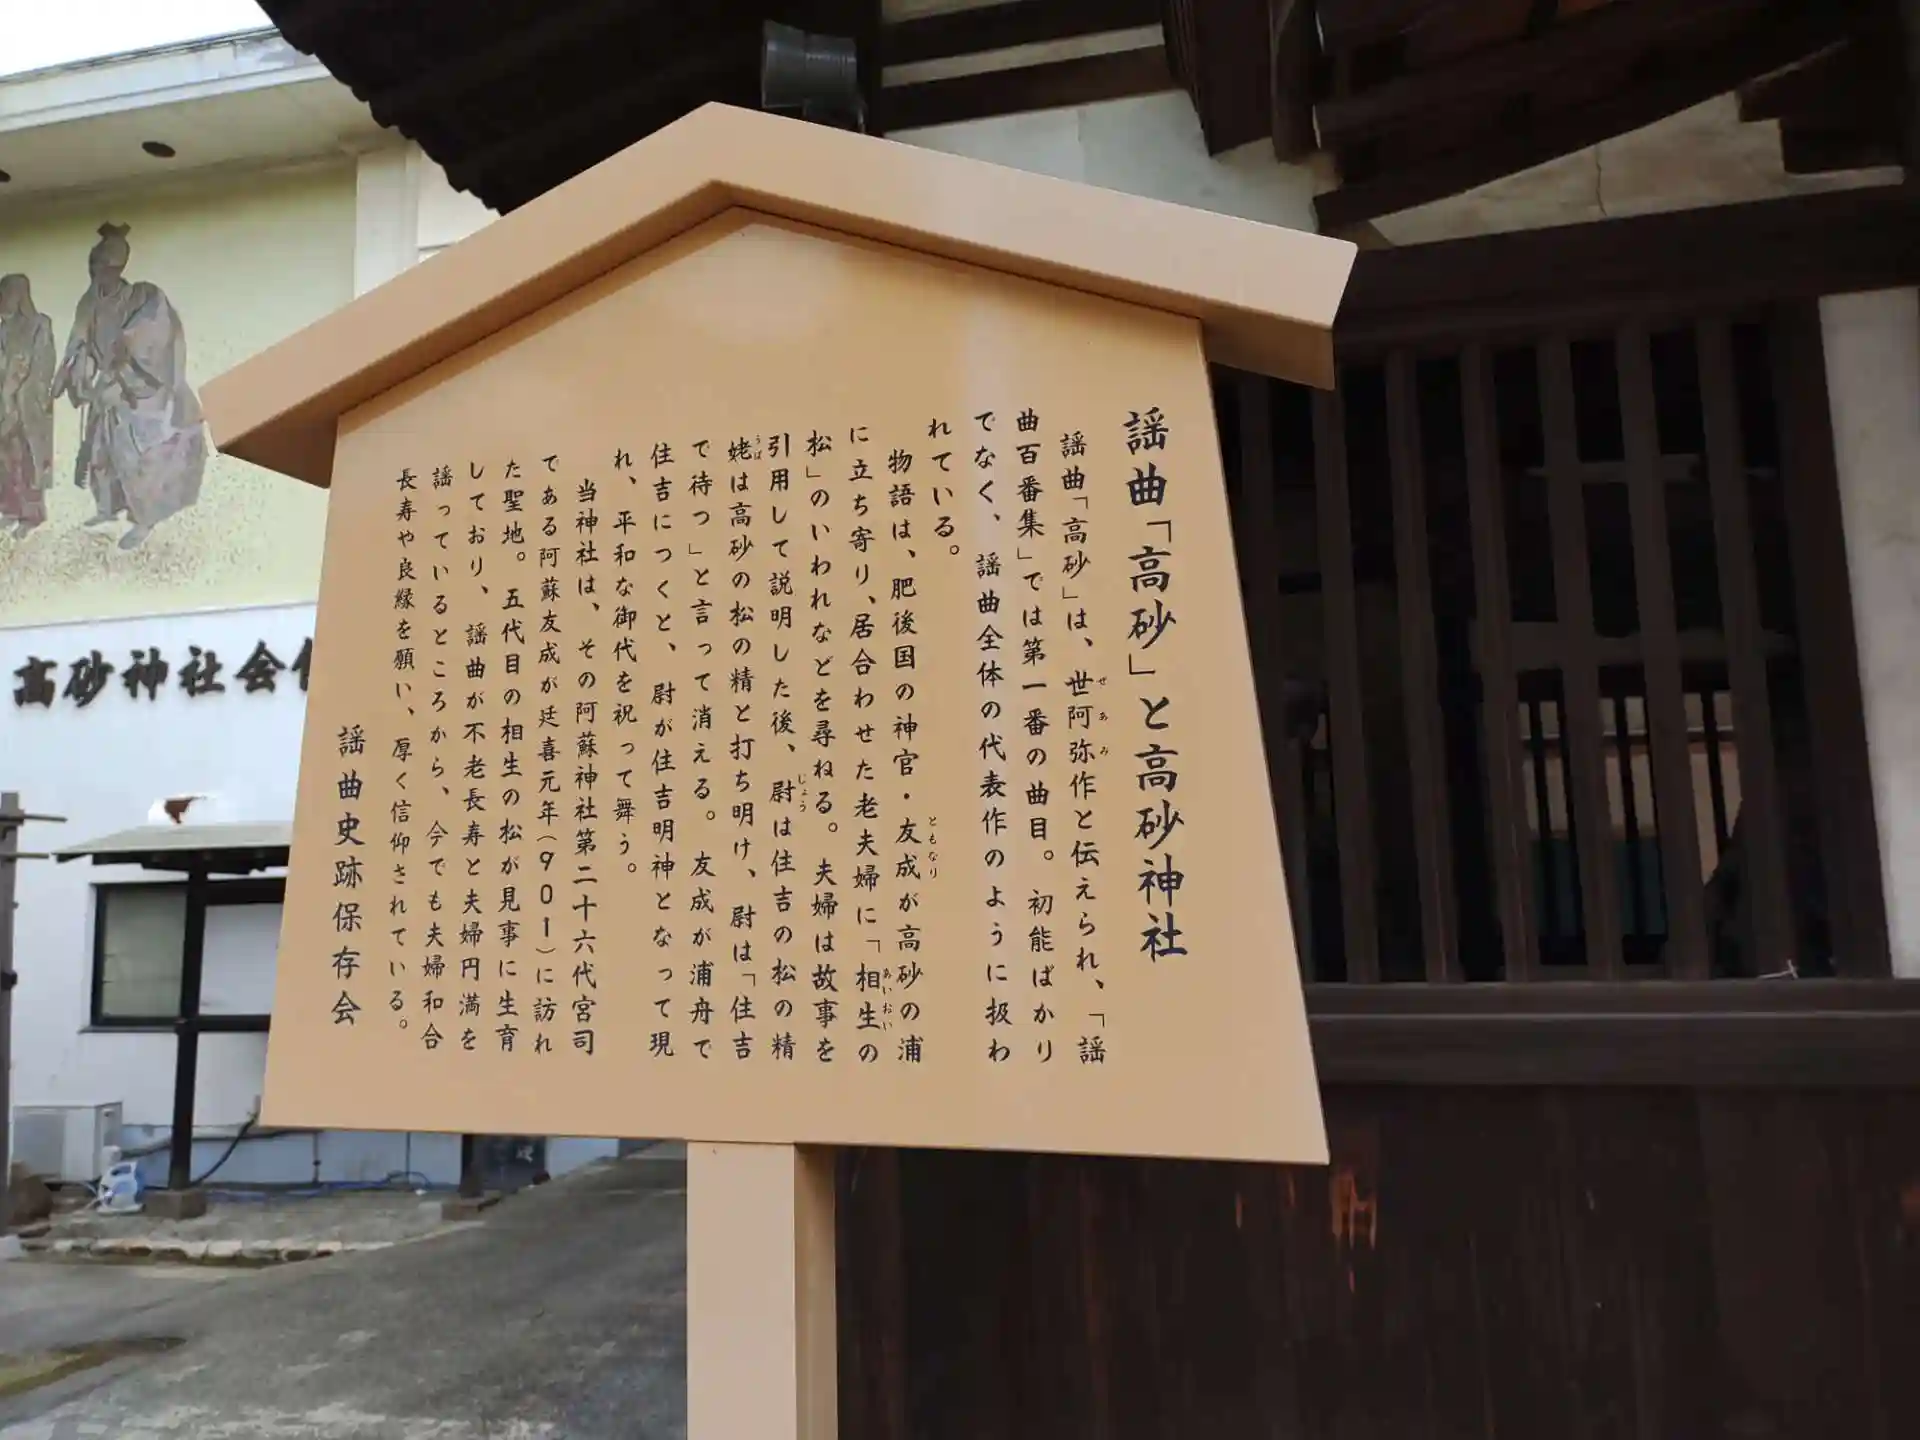 謡曲「高砂」と高砂神社
謡曲「高砂」は、世阿弥作と伝えられ、「謡
曲百番集」では第一番の曲目。初能ばかり
でなく、謡曲全体の代表作のように扱わ
れている。
物語は、肥後国の神官・友成が高砂の浦
に立ち寄り、居合わせた老夫婦に「相生の
松」のいわれなどを尋ねる。夫婦は故事を
引用して説明した後、尉は住吉の松の精
姥は高砂の松の精と打ち明け、尉は「住吉
で待つ」と言って消える。友成が浦舟で
住吉につくと、尉が住吉明神となって現
れ、平和な御代を祝って舞う。
当神社は、その阿蘇神社第二十六代宮司
である阿蘇友成が廷喜元年(901)に訪れ
た聖地。五代目の相生の松が見事に生育
しており、謡曲が不老長寿と夫婦円満を
謡っているところから、今でも夫婦和合
長寿や良縁を願い、厚く信仰されている。
謡曲史跡保存会
せあみ
ともなり
あいおい
じょう
うば
高砂神社会